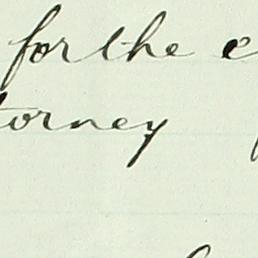 for the
torney